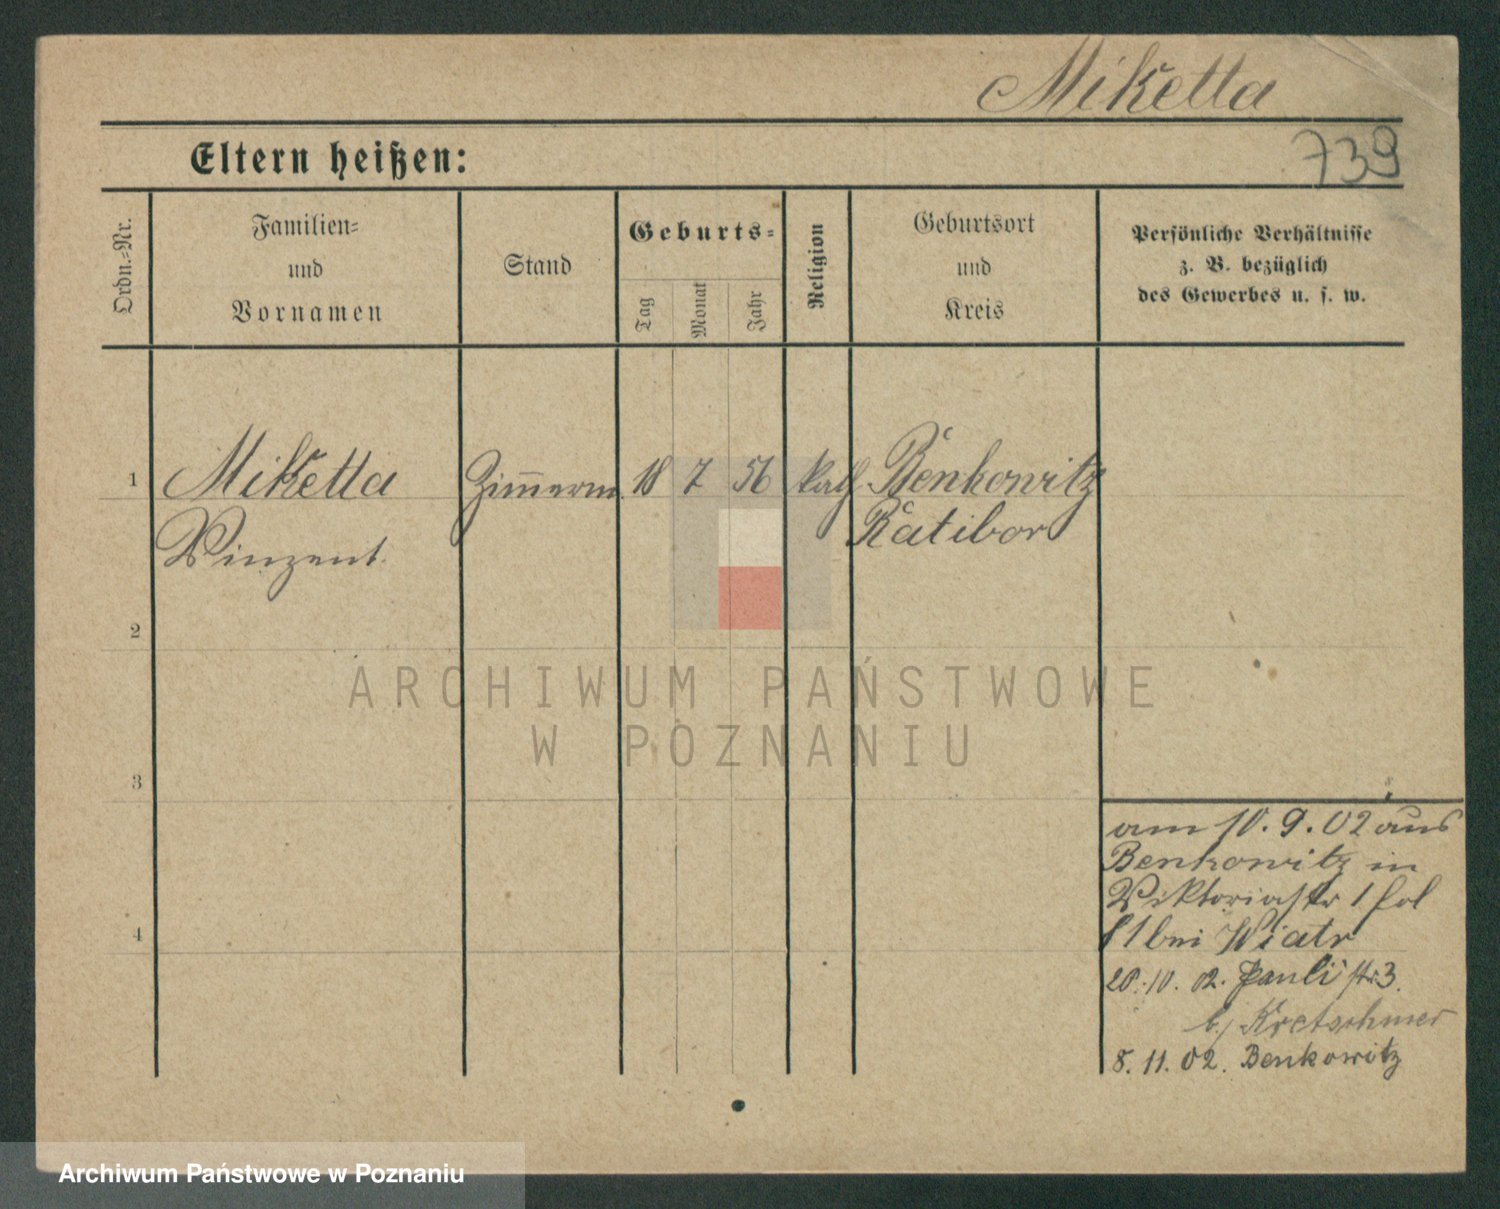 Miketta
739
Eltern heißen:
Ordn.-Nr.
Familien-
und
Vornamen
Stand
Geburts-
Tag
Monat
Jahr
Religion
Geburtsort
und
Kreis
Persönliche Verhältnisse
z. B. bezüglich
des Gewerbes u. s. w.
1 Miketta Zimmerm. 18 7 56 kath Benkowitz
Vinzent Ratibor
2
3
4
am 10.9.02 aus
Benkowitz in
Viktoriastr 1
bei Wiatr
20.10.02. Pauli str. 3.
b/ Kretschmer
8.11.02. Benkowitz
ARCHIWUM PAŃSTWOWE
W POZNANIU
Archiwum Państwowe w Poznaniu